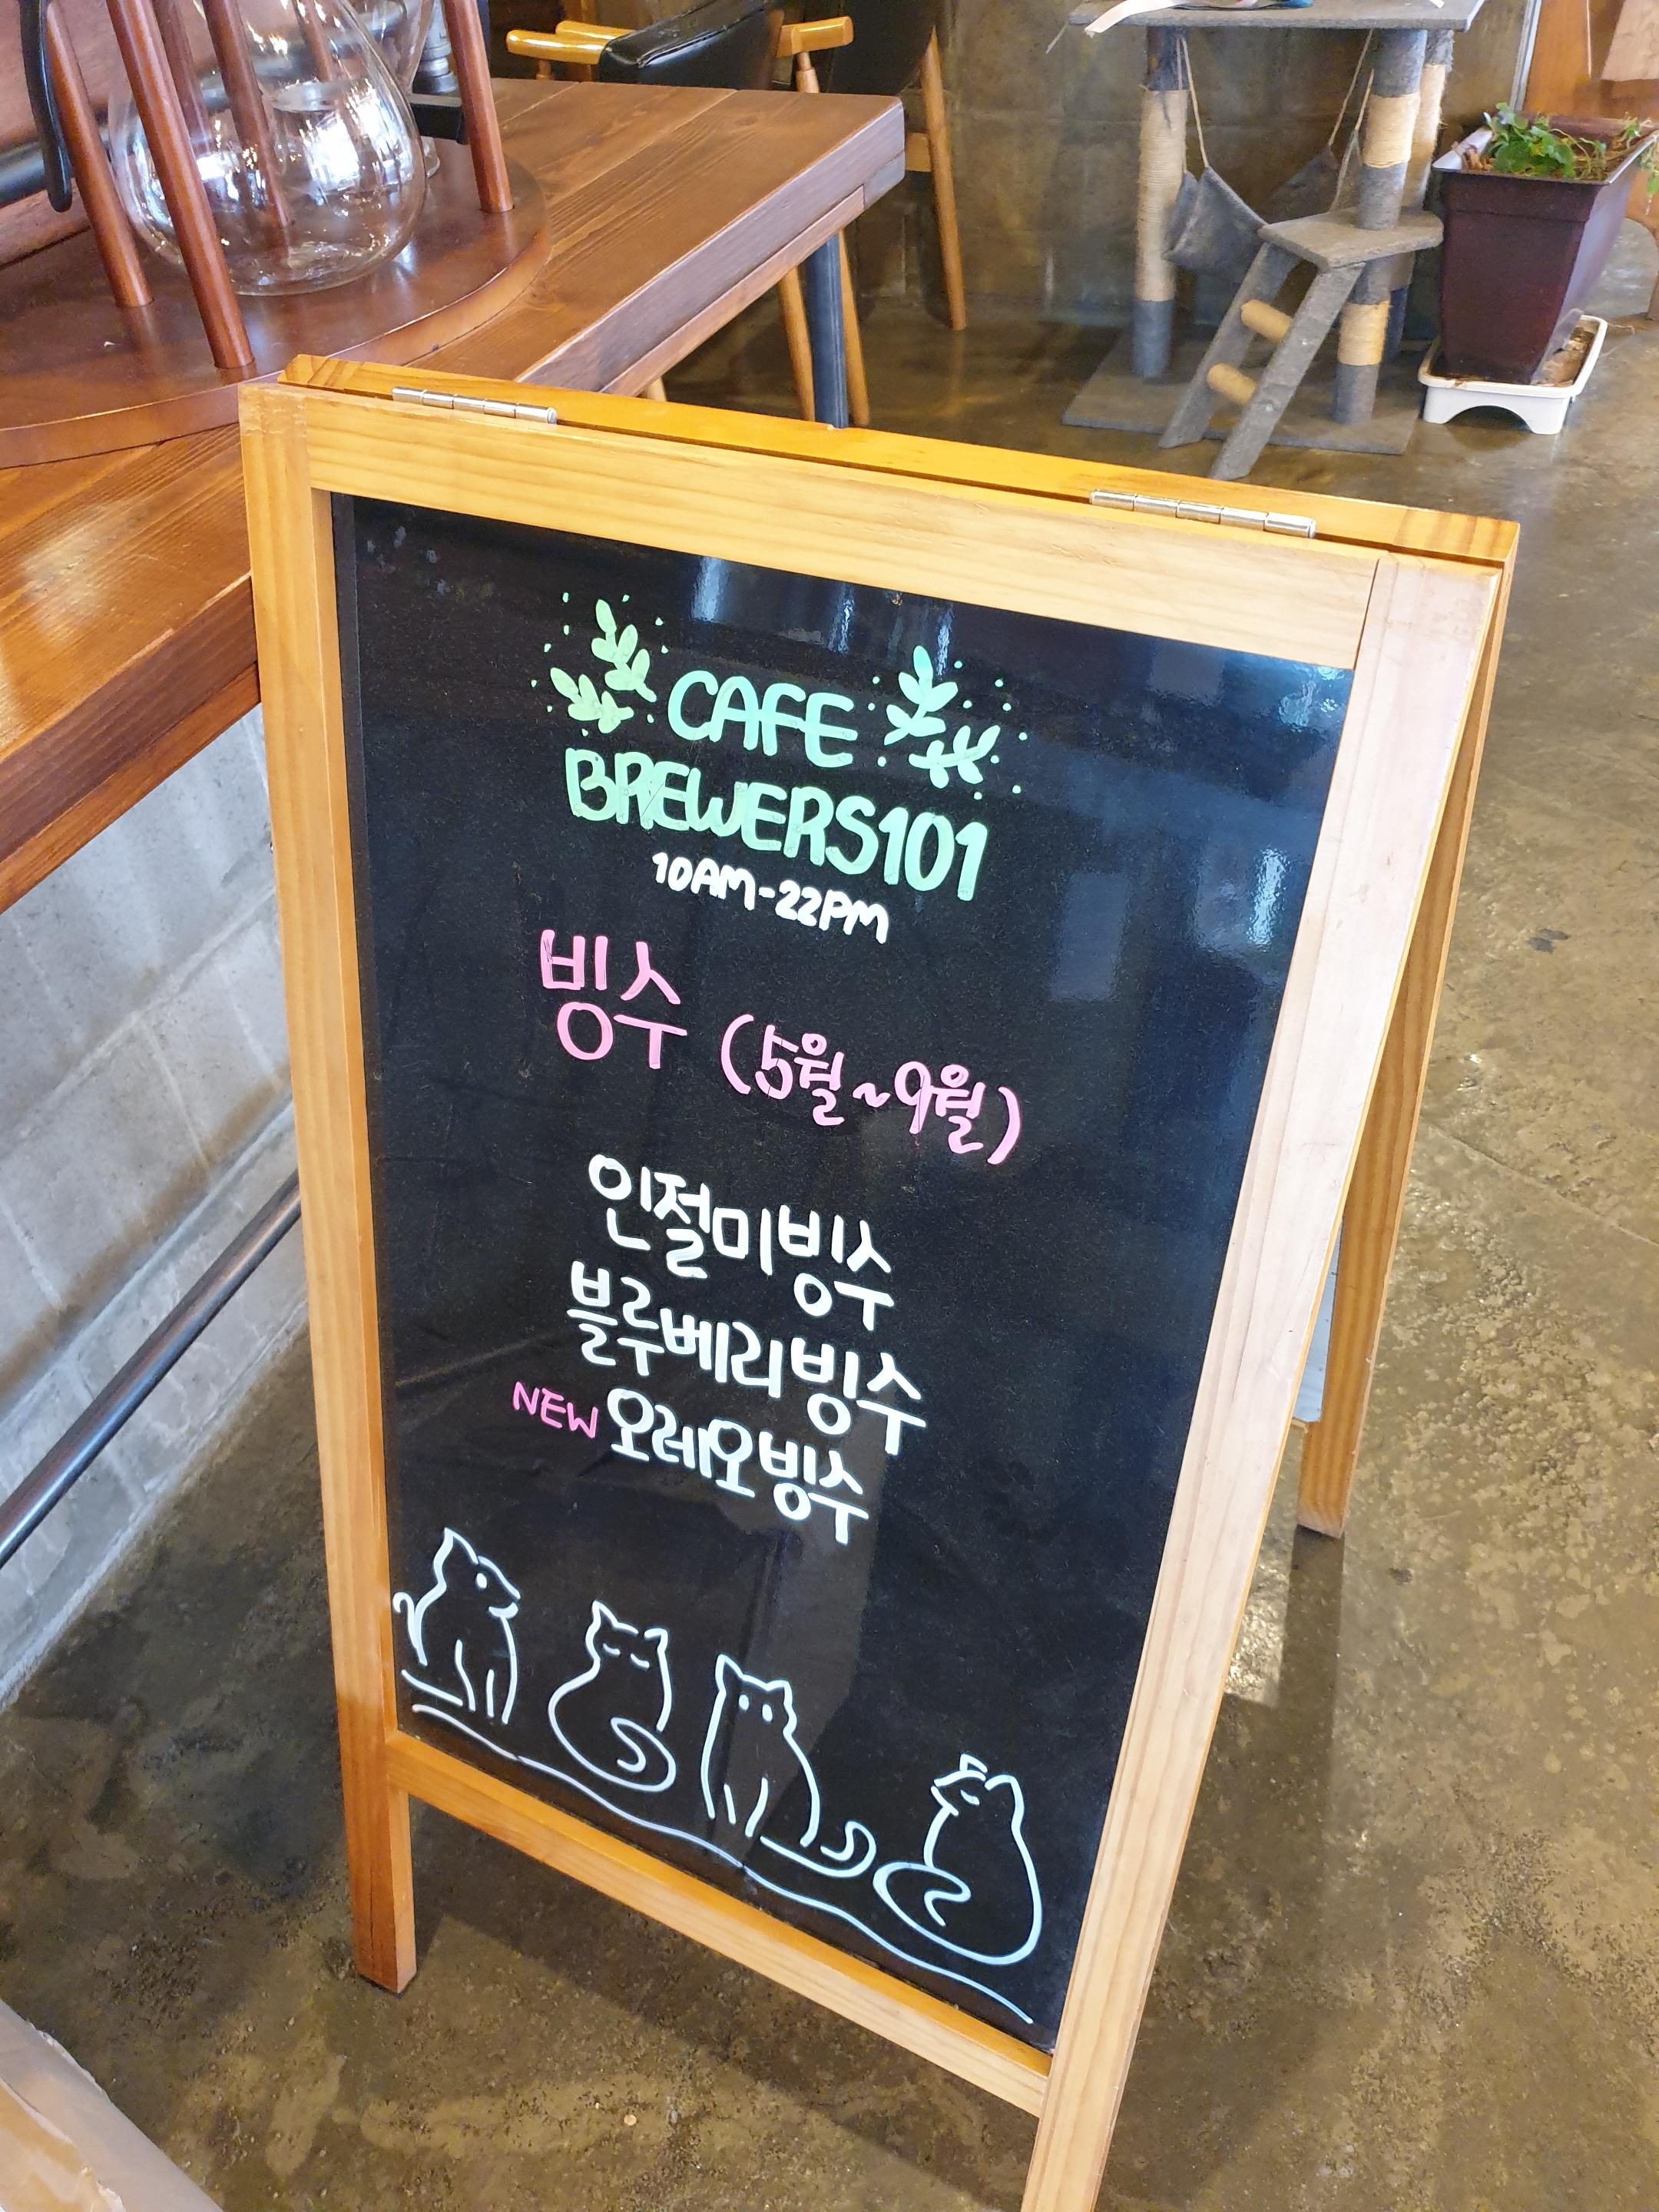 CAFE
BREWERS101
10AM-22PM
빙수 (5월~9월)
인절미빙수
블루베리빙수
NEW 오레오빙수